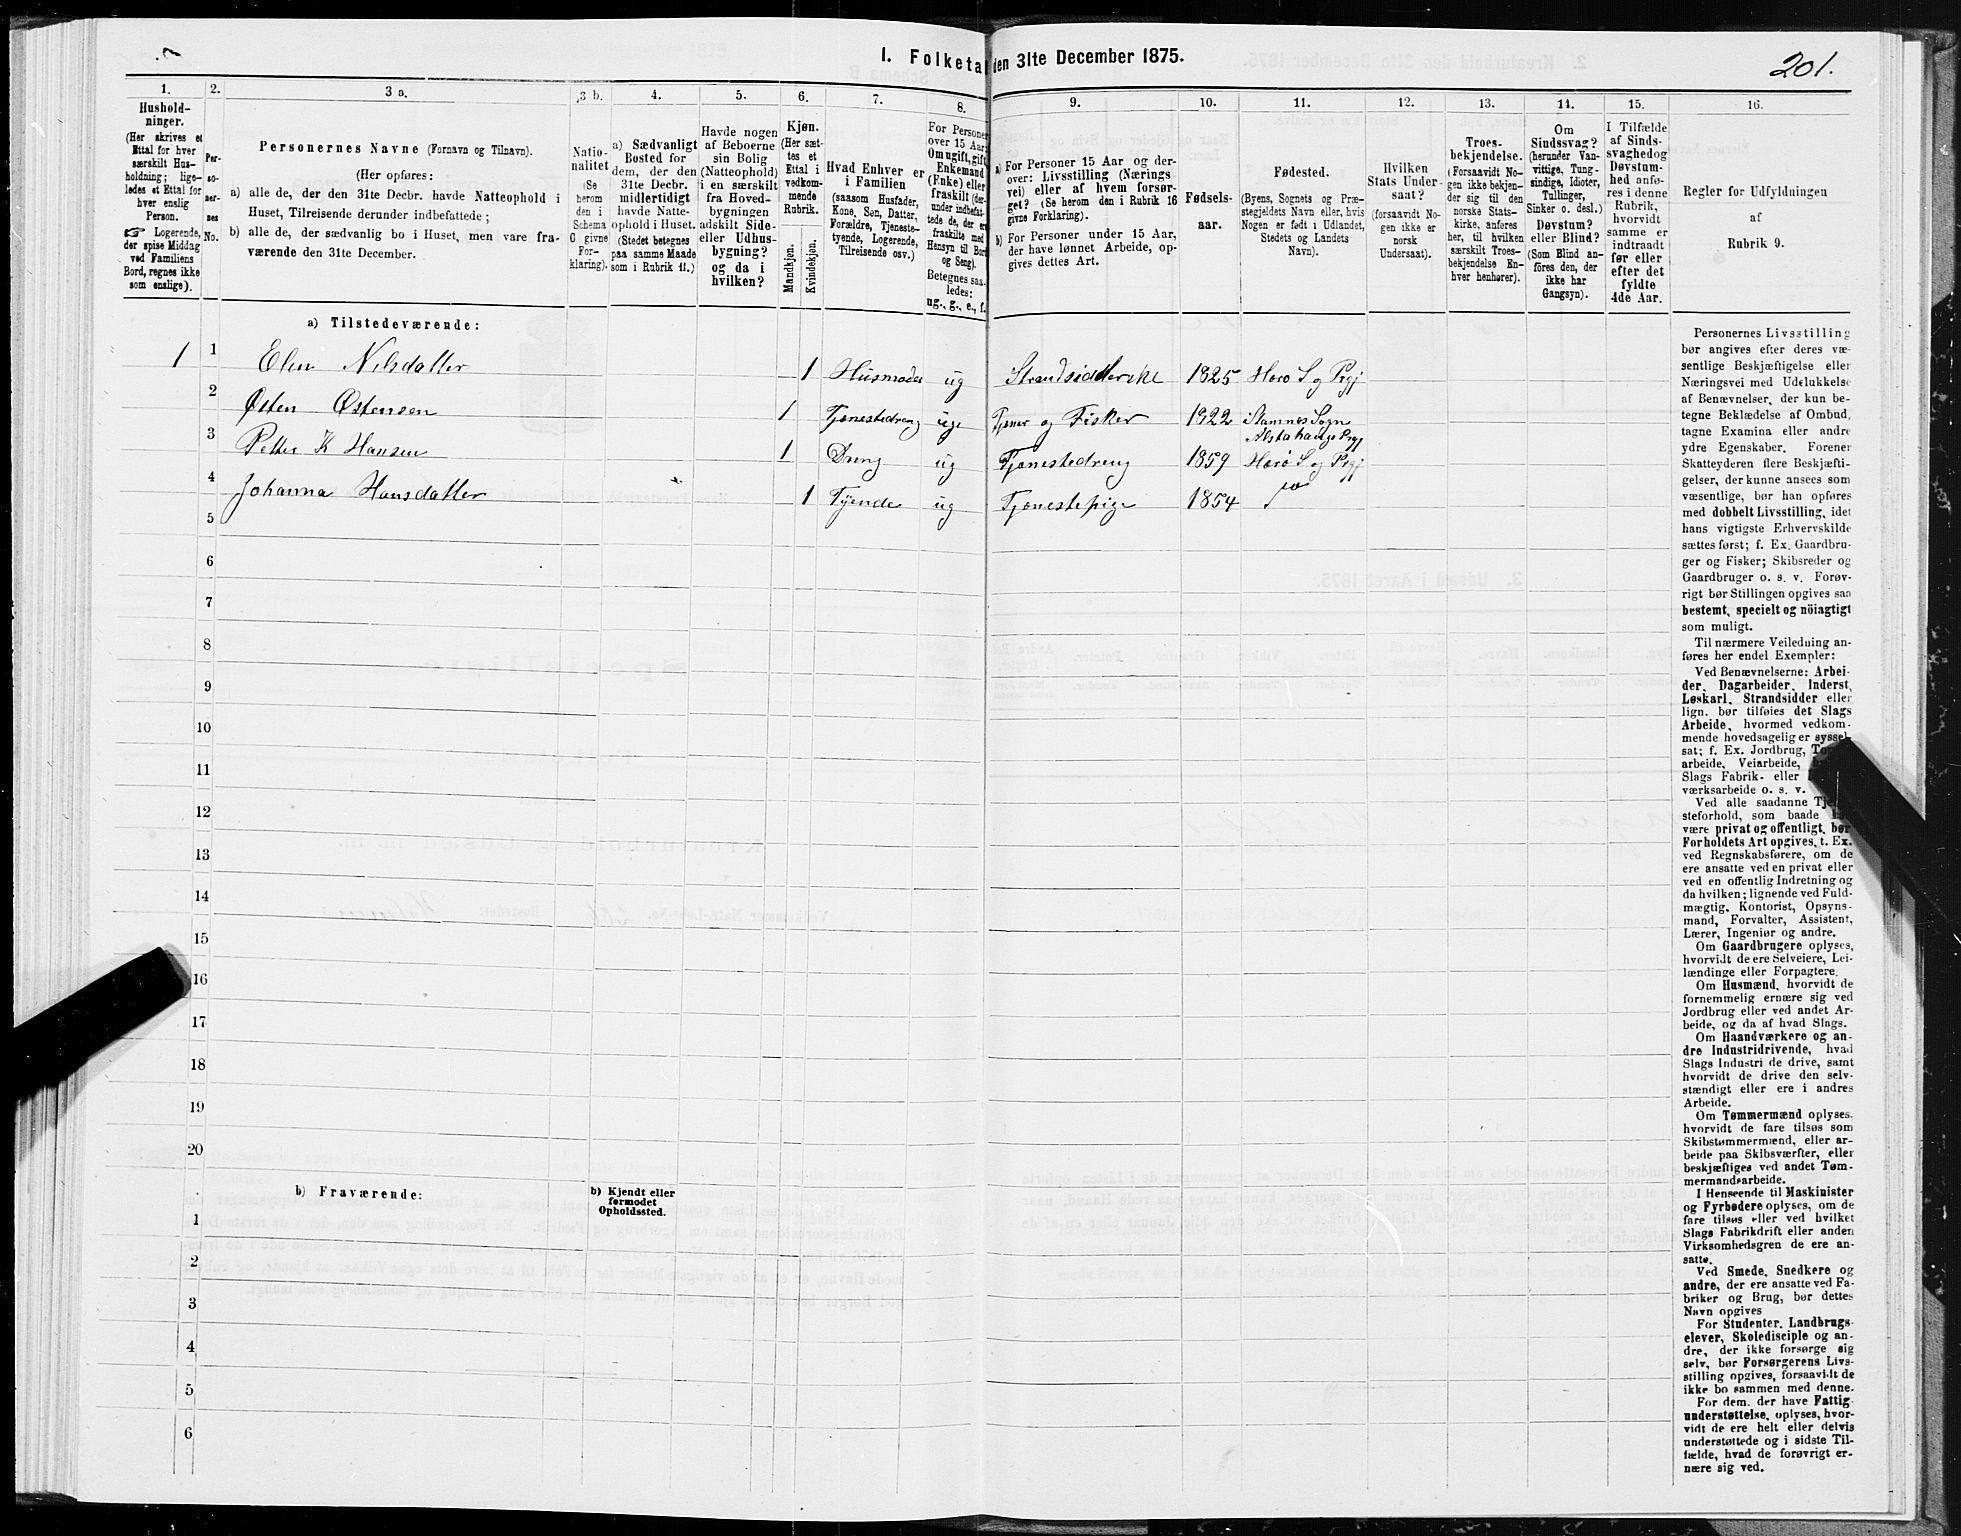 I. Folketal den 31te December 1875.
201.
1.
Hushold-
ninger.
(Her skrives et
Ettal for hver
særskilt Hus-
holdning; lige-
ledes et Ettal for
hver enslig
Person.
☞ Logerende,
der spise Middag
ved Familiens
Bord, regnes ikke
som enslige).
2.
Per-
so-
ner-
nes
No.
3 a.
Personernes Navne (Fornavn og Tilnavn).
(Her opføres:
a) alle de, der den 31te Decbr. havde Natteophold i
Huset, Tilreisende derunder indbefattede;
b) alle de, der sædvanlig bo i Huset, men vare fra-
værende den 31te December.
3 b.
Natio-
nalitet
(Se
herom
den i
Schema
C givne
For-
klaring).
4.
a) Sædvanligt
Bosted for
dem, der den
31te Decbr.
midlertidigt
havde Natte-
ophold i Huset.
(Stedet betegnes
paa samme Maade
som i Rubrik 11.)
5.
Havde nogen
af Beboerne
sin Bolig
(Natteophold)
i en særskilt
fra Hoved-
bygningen
adskilt Side-
eller Udhus-
bygning?
og da i
hvilken?
6.
Kjøn.
(Her sæt-
tes et
Ettal i
vedkom-
mende
Rubrik.
Mandkjøn.
Kvindekjøn.
7.
Hvad Enhver er
i Familien
(saasom Husfader,
Kone, Søn, Datter,
Forældre, Tjeneste-
tyende, Logerende,
Tilreisende osv.)
8.
For Personer
over 15 Aar:
Om ugift, gift,
Enkemand
(Enke) eller
fraskilt (der-
under indbefat-
tede de, der er
fraskilte med
Hensyn til Bord
og Seng).
Betegnes saa-
ledes:
ug., g., e., f.
9.
a) For Personer 15 Aar og der-
over: Livsstilling (Nærings
vei) eller af hvem forsør-
get? (Se herom den i Rubrik 16
givne Forklaring).
b) For Personer under 15 Aar,
der have lønnet Arbeide, op-
gives dettes Art.
10.
Fødsels-
aar.
11.
Fødested.
(Byens, Sognets og Præ-
stegjeldets Navn eller, hvis
Nogen er født i Udlandet,
Stedets og Landets
Navn).
12.
Hvilken
Stats Under-
saat?
(forsaavidt No-
gen ikke er
norsk
Undersaat).
13.
Troes-
bekjendelse.
(Forsaavidt No-
gen ikke bekjen-
der sig til den
norske Stats-
kirke, anføres
her, til hvilken
særskilt Troes-
bekjendelse En-
hver henhører).
14.
Om
Sindssvag?
(herunder Van-
vittige, Tung-
sindige, Idioter,
Tullinger,
Sinker o. desl.)
Døvstum?
eller Blind?
(Som Blind an-
føres den, der
ikke har
Gangsyn).
15.
I Tilfælde
af Sinds-
svaghed og
Døvstum-
hed anfø-
res i denne
Rubrik,
hvorvidt
samme er
indtraadt
før eller
efter det
fyldte
4de Aar.
16.
Regler for Udfyldningen
af
Rubrik 9.
a) Tilstedeværende:
1 1 Elen Nilsdatter 1 Husmoder ug Strandsidderske 1825 Herø S og Prgj
2 Østen Østensen 1 Tjenestedreng ug Tjener og Fisker 1922 Stamnes Sogn
Alstahaugs Prgj
3 Petter K Hansen 1 Dreng ug Tjenestedreng 1859 Herø S og Prgj
4 Johanna Hansdatter 1 Tyende ug Tjenestepige 1854
5
6
7
8
9
10
11
12
13
14
15
16
17
18
19
20
b) Fraværende:
b) Kjendt eller
formodet
Opholdssted.
1
2
3
4
5
6
Personernes Livsstilling
bør angives efter deres væ-
sentlige Beskjæftigelse eller
Næringsvei med Udelukkelse
af Benævnelser, der kun be-
tegne Beklædelse af Ombud,
tagne Examina eller andre
ydre Egenskaber. Forener
Skatteyderen flere Beskjæfti-
gelser, der kunne ansees som
væsentlige, bør han opføres
med dobbelt Livsstilling, idet
hans vigtigste Erhvervskilde
sættes først; f. Ex. Gaardbru-
ger og Fisker; Skibsreder og
Gaardbruger o. s. v. Forøv-
rigt bør Stillingen opgives saa
bestemt, specielt og nöiagtigt
som muligt.
Til nærmere Veiledning an-
føres her endel Exempler:
Ved Benævnelserne: Arbei-
der, Dagarbeider, Inderst,
Løskarl, Strandsidder eller
lign. bør tilføies det Slags
Arbeide, hvormed vedkom-
mende hovedsagelig er syssel-
sat; f. Ex. Jordbrug,
arbeide, Veiarbeide,
Slags Fabrik- eller
værksarbeide o. s. v.
Ved alle saadanne
steforhold, som baade
være privat og offentligt, bør
Forholdets Art opgives, t. Ex.
ved Regnskabsførere, om de
ere ansatte ved en privat eller
ved en offentlig Indretning og
da hvilken; lignende ved Fuld-
mægtig, Kontorist, Opsyns-
mand, Forvalter, Assistent,
Lærer, Ingeniør og andre.
Om Gaardbrugere oplyses,
hvorvidt de ere Selveiere, Lei-
lændinge eller Forpagtere.
Om Husmænd, hvorvidt de
fornemmelig ernære sig ved
Jordbrug eller ved andet Ar-
beide, og da af hvad Slags.
Om Haandværkere og an-
dre Industridrivende, hvad
Slags Industri de drive, samt
hvorvidt de drive den selv-
stændigt eller ere i andres
Arbeide.
Om Tømmermænd oplyses,
hvorvidt de fare tilsøs som
Skibstømmermænd, eller ar-
beide paa Skibsværfter, eller
beskjæftiges ved andet Tøm-
mermandsarbeide.
I Henseende til Maskinister
og Fyrbødere oplyses, om de
fare tilsøs eller ved hvilket
Slags Fabrikdrift eller anden
Virksomhedsgren de ere an-
satte.
Ved Smede, Snedkere og
andre, der ere ansatte ved Fa-
briker og Brug, bør dettes
Navn opgives
For Studenter, Landbrugs-
elever, Skoledisciple og an-
dre, der ikke forsørge sig
selv, bør Forsørgerens Livs-
stilling opgives, forsaavidt de
ikke bo sammen med denne.
For dem, der have Fattig-
understøttelse, oplyses, hvor-
vidt de ere helt eller delvis
understøttede og i sidste Til-
fælde, hvad de forøvrigt er-
nære sig ved.